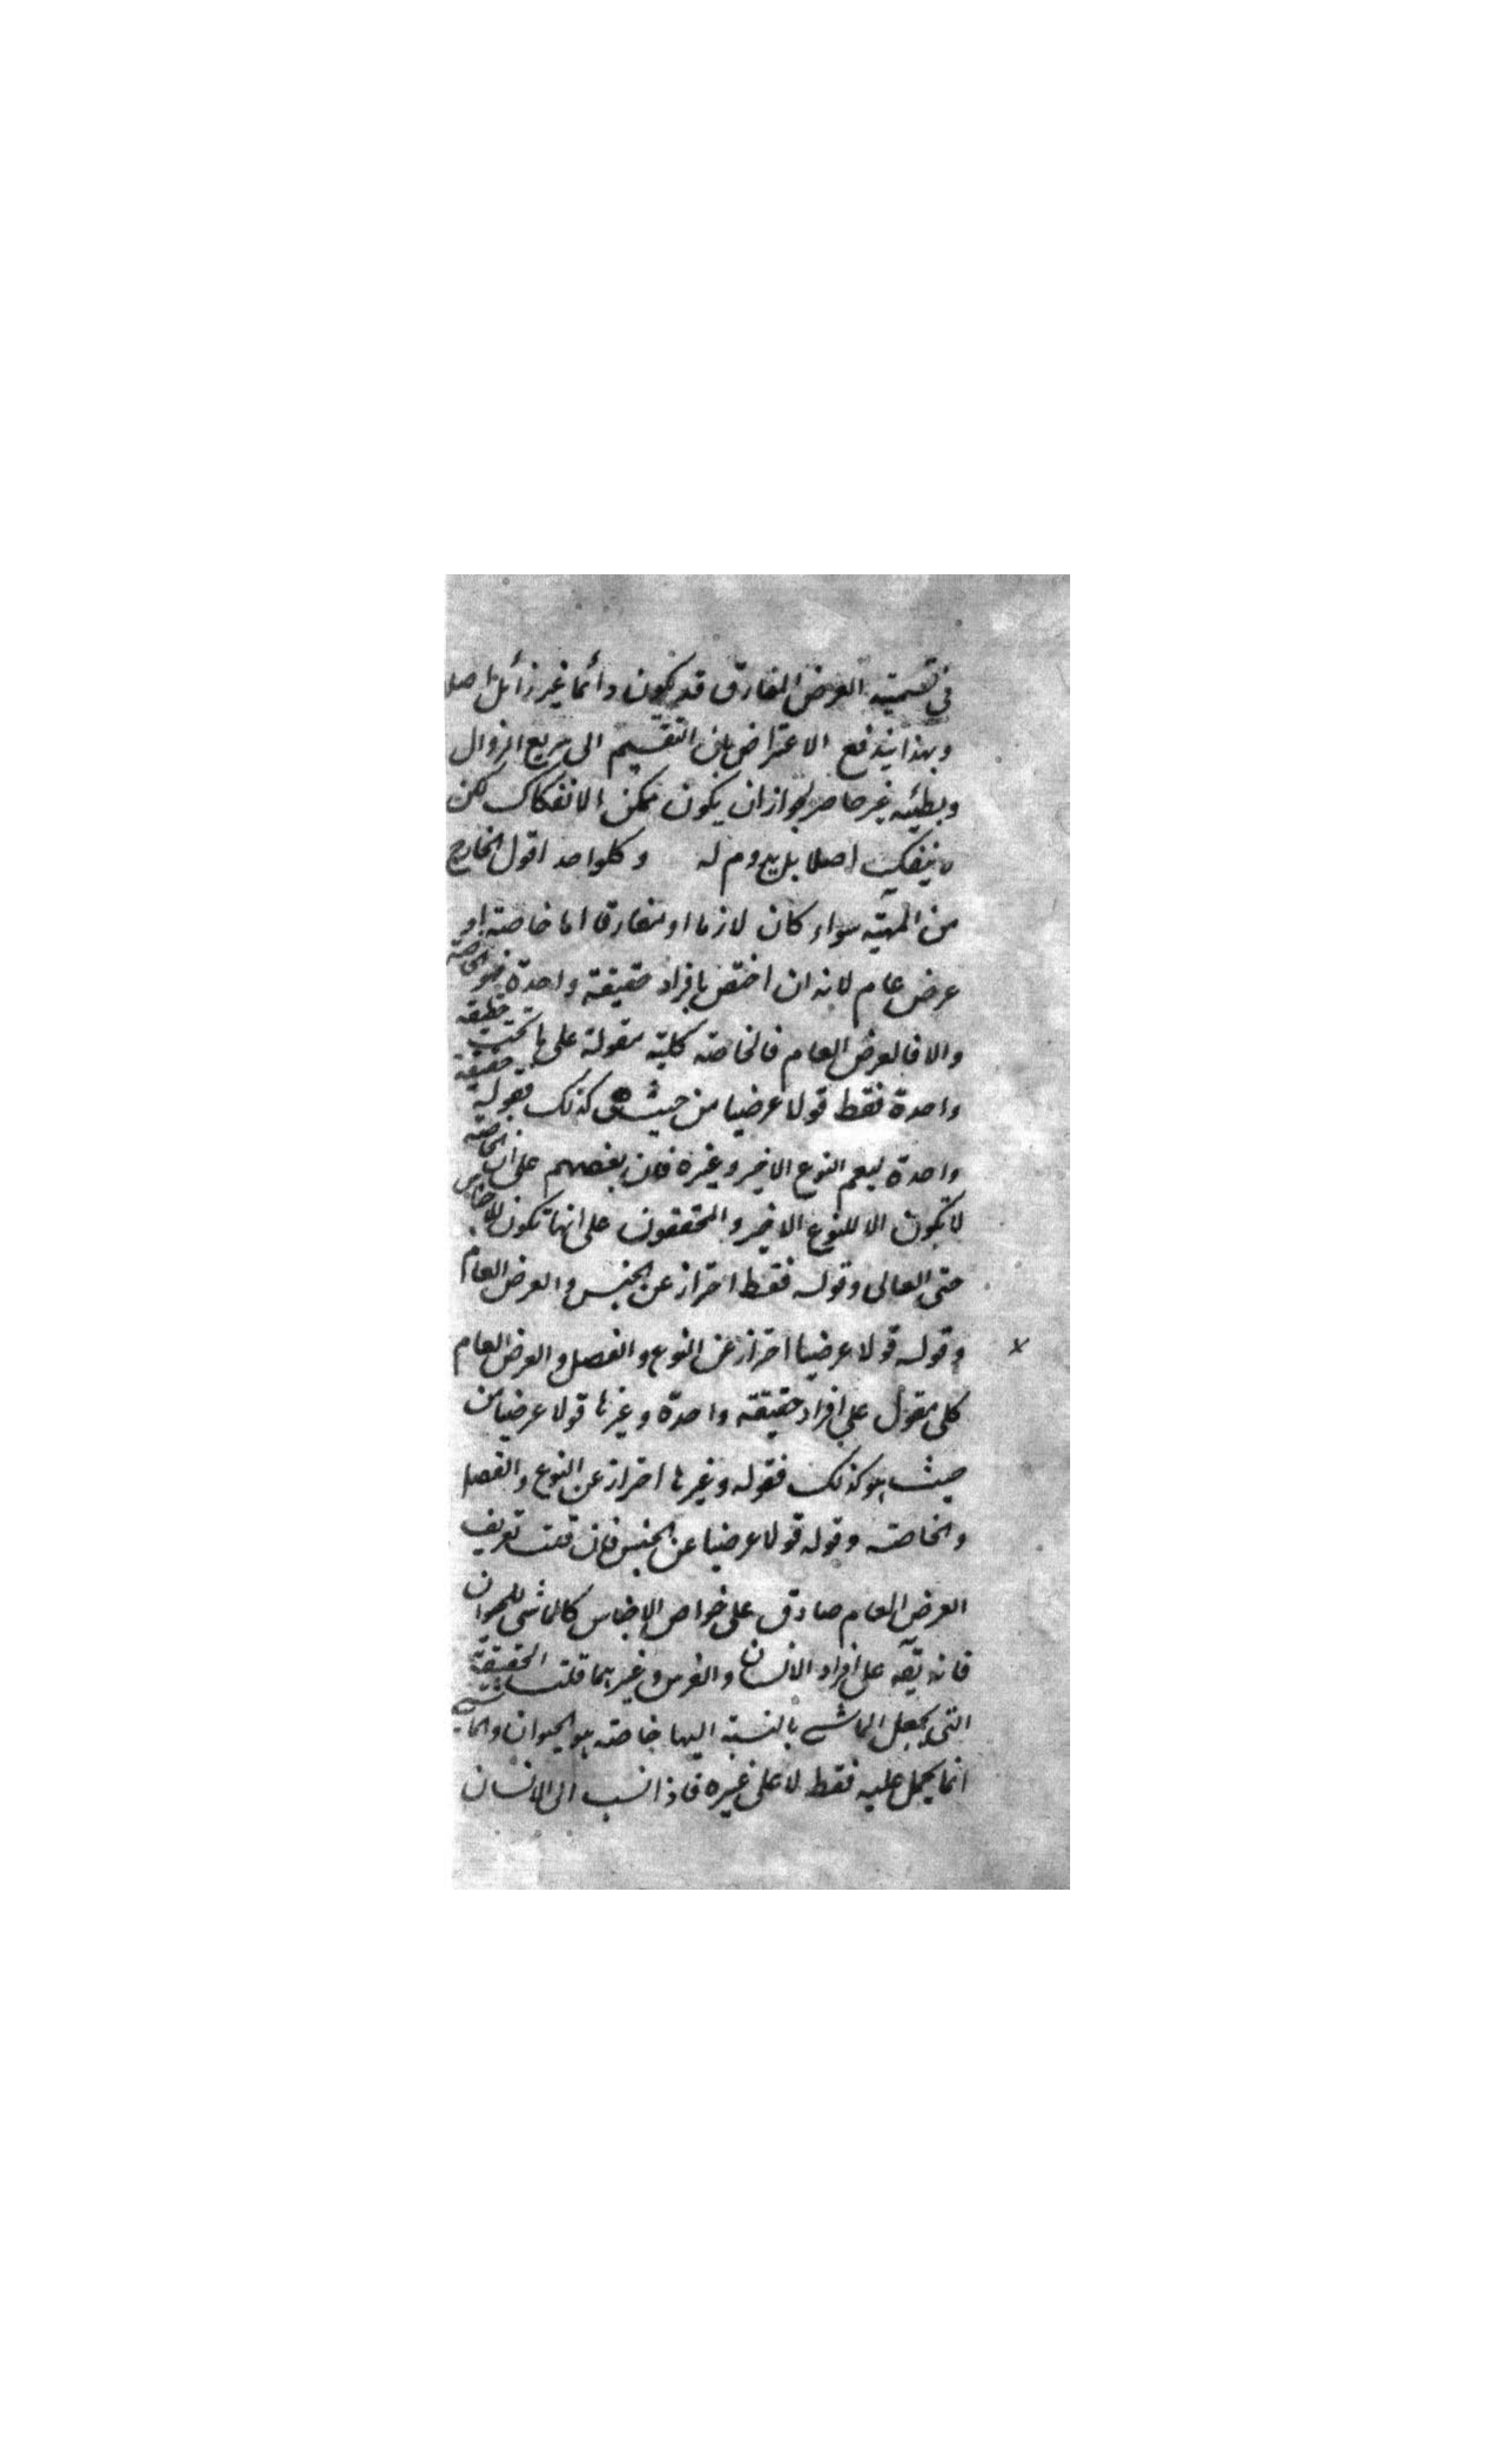 في تسميته العرض المفارق قد يكون دائما غير زائل اصلا
وبهذا يندفع الاعتراض بان التقسيم الى سريع الزوال
وبطيئه غير حاصر لجواز ان يكون ممكن الانفكاك لكن
لا ينفك اصلا بل يدوم له وكلواحد اقول الخارج
من المهية سواء كان لازما او مفارقا اما خاصة او
عرض عام لانه ان اختص بافراد حقيقة واحدة فهو الخاصة
والا فالعرض العام فالخاصة كلية مقولة على ما تحت حقيقة
واحدة فقط قولا عرضيا من حيث هى كذلك فقوله حقيقة
واحدة ليعم النوع الاخير وغيره فان بعضهم على ان الخاصة
لا تكون الا للنوع الاخير والمحققون على انها تكون للاجناس
حتى العالى وقوله فقط احتراز عن الجنس والعرض العام
وقوله قولا عرضيا احتراز عن النوع والفصل والعرض العام
كلى مقول على افراد حقيقة واحدة وغيرها قولا عرضيا من
حيث هو كذلك فقوله وغيرها احتراز عن النوع والفصل
والخاصة وقوله قولا عرضيا عن الجنس فان قلت تعريف
العرض العام صادق على خواص الاجناس كالماشى للحيوان
فانه يقه على افراد الانسان والفرس وغيرهما قلت الحقيقة
التى يجعل الماشى بالنسبة اليها خاصة هو الحيوان والماشى
انما يحمل عليه فقط لا على غيره فاذا نسب الى الانسان